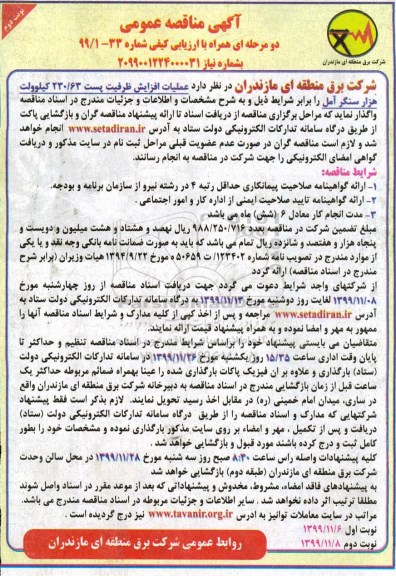 نوبت دوم
آگهی مناقصه عمومی
دو مرحله ای همراه با ارزیابی کیفی شماره ۳۳-۹۹/۱
بشماره نیاز ۲۰۹۹۰۰۱۲۲۴۰۰۰۰۳۱
شرکت برق منطقه ای مازندران
شرکت برق منطقه ای مازندران در نظر دارد عملیات افزایش ظرفیت پست ۲۳۰/۶۳ کیلوولت
هزار سنگر آمل را برابر شرایط ذیل و به شرح مشخصات و اطلاعات و جزئیات مندرج در اسناد مناقصه
واگذار نماید که مراحل برگزاری مناقصه از دریافت اسناد تا ارائه پیشنهاد مناقصه گران و بازگشایی پاکت
از طریق درگاه سامانه تدارکات الکترونیکی دولت ستاد به آدرس www.setadiran.ir انجام خواهد
شد و لازم است مناقصه گران در صورت عدم عضویت قبلی مراحل ثبت نام در سایت مذکور و دریافت
گواهی امضای الکترونیکی را جهت شرکت در مناقصه به انجام رسانند.
شرایط مناقصه:
۱- ارائه گواهینامه صلاحیت پیمانکاری حداقل رتبه ۴ در رشته نیرو از سازمان برنامه و بودجه.
۲- ارائه گواهینامه تایید صلاحیت ایمنی از اداره کار و امور اجتماعی .
۳- مدت انجام کار معادل ۶ (شش) ماه می باشد
مبلغ تضمین شرکت در مناقصه بعدد ۹۸۸/۲۵۰/۷۱۶ ریال نهصد و هشتاد و هشت میلیون و دویست و
پنجاه هزار و هفتصد و شانزده ریال تمام می باشد که باید به صورت ضمانت نامه بانکی وجه نقد و یا یکی
از موارد مندرج در تصویب نامه شماره ۱۲۳۴۰۲/ ت ۵۰۶۵۹ ه مورخ ۱۳۹۴/۹/۲۲ هیات وزیران (برابر شرح
مندرج در اسناد مناقصه) ارائه گردد
از شرکتهای واجد شرایط دعوت می گردد جهت دریافت اسناد مناقصه از روز چهارشنبه مورخ
۱۳۹۹/۱۱/۰۸ لغایت روز دوشنبه مورخ ۱۳۹۹/۱۱/۱۳ به درگاه سامانه تدارکات الکترونیکی دولت ستاد به
آدرس www.setadiran.ir مراجعه و پس از اخذ کپی از کلیه مدارک و شرایط اسناد مناقصه آنها را
ممهور به مهر و امضا نموده و به همراه پیشنهاد قیمت ارائه نمایند.
متقاضیان می بایستی پیشنهاد خود را براساس شرایط مندرج در اسناد مناقصه تنظیم و حداکثر تا
پایان وقت اداری ساعت ۱۵/۳۵ روز یکشنبه مورخ ۱۳۹۹/۱۱/۲۶ در سامانه تدارکات الکترونیکی دولت
(ستاد) بارگذاری و علاوه بر آن فیزیک پاکات بارگذاری شده را عینا بهمراه ضمائم مربوطه حداکثر یک
ساعت قبل از زمان بازگشایی مندرج در اسناد مناقصه به دبیرخانه شرکت برق منطقه ای مازندران واقع
در ساری، میدان امام خمینی (ره) در مقابل اخذ رسید تحویل نمایند. لازم بذکر است فقط پیشنهاد
شرکتهایی که مدارک و اسناد مناقصه را از طریق درگاه سامانه تدارکات الکترونیکی دولت (ستاد)
دریافت و پس از تکمیل ، مهر و امضاء بر روی سایت مذکور بارگذاری نموده و مشخصات خود را بطور
کامل ثبت و درج کرده باشند مورد قبول و بازگشایی خواهد شد .
کلیه پیشنهادات واصله راس ساعت ۸:۳۰ صبح روز سه شنبه مورخ ۱۳۹۹/۱۱/۲۸ در محل سالن وحدت
شرکت برق منطقه ای مازندران (طبقه دوم) بازگشایی خواهد شد
به پیشنهادهای فاقد امضاء، مشروط، مخدوش و پیشنهاداتی که بعد از موعد مقرر در اسناد واصل شوند
مطلقا ترتیب اثر داده نخواهد شد . سایر اطلاعات و جزئیات مربوطه در اسناد مناقصه مندرج می باشد.
مراتب در سایت معاملات توانیر به آدرس www.tavanir.org.ir نیز درج گردیده است .
نوبت اول ۱۳۹۹/۱۱/۶
نوبت دوم ۱۳۹۹/۱۱/۸
روابط عمومی شرکت برق منطقه ای مازندران